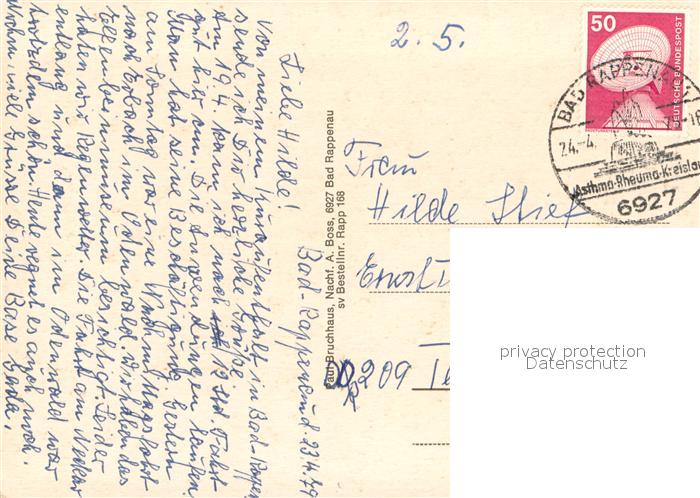 Bad-Rappenau d. 23.4.79
Liebe Hilde!
Von meinem Kuraufenthalt in Bad-Rappen
sende ich Dir herzliche Grüße.
Am 19.4. kam ich nach 12 Std. Fahrt
gut hier an. Die Anwendungen laufen.
Man hat seine Beschäftigung. Gestern
am Sonntag war eine Nachmittagsfahrt
nach Erbach im Odenwald. Wir haben das
Elfenbeinmuseum besichtigt. Leider
hatten wir Regenwetter. Die Fahrt im Neckar
entlang und im Odenwald war
trotzdem schön. Heute regnet es auch noch.
Nochm. viele Grüsse Deine Base
Paul Bruchhaus, Nachf. A. Boss, 6927 Bad Rappenau
sv Bestellnr. Rapp 168
2. 5.
50
DEUTSCHE BUNDESPOST
BAD RAPPENA
24.-4.
Asthma-Rheuma-Kreislau
6927
Frau
Hilde Stief
Ernst
209
privacy protection
Datenschutz